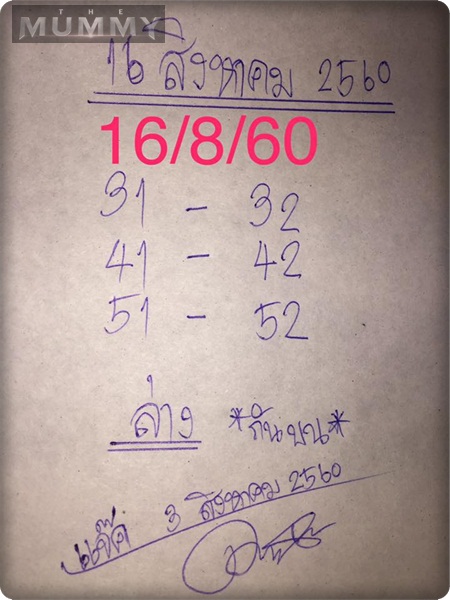 THE
MUMMY
16 สิงหาคม 2560
16/8/60
31 - 32
41 - 42
51 - 52
ล่าง *กันบน*
3 สิงหาคม 2560